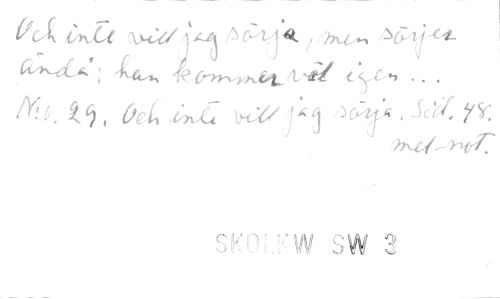 Och inte vill jag sörja, men sörjer
ändå; han kommer väl igen ...
N:o. 29. Och inte vill jag sörja. Sid. 48.
mel-not.
SKOLKW SW 3